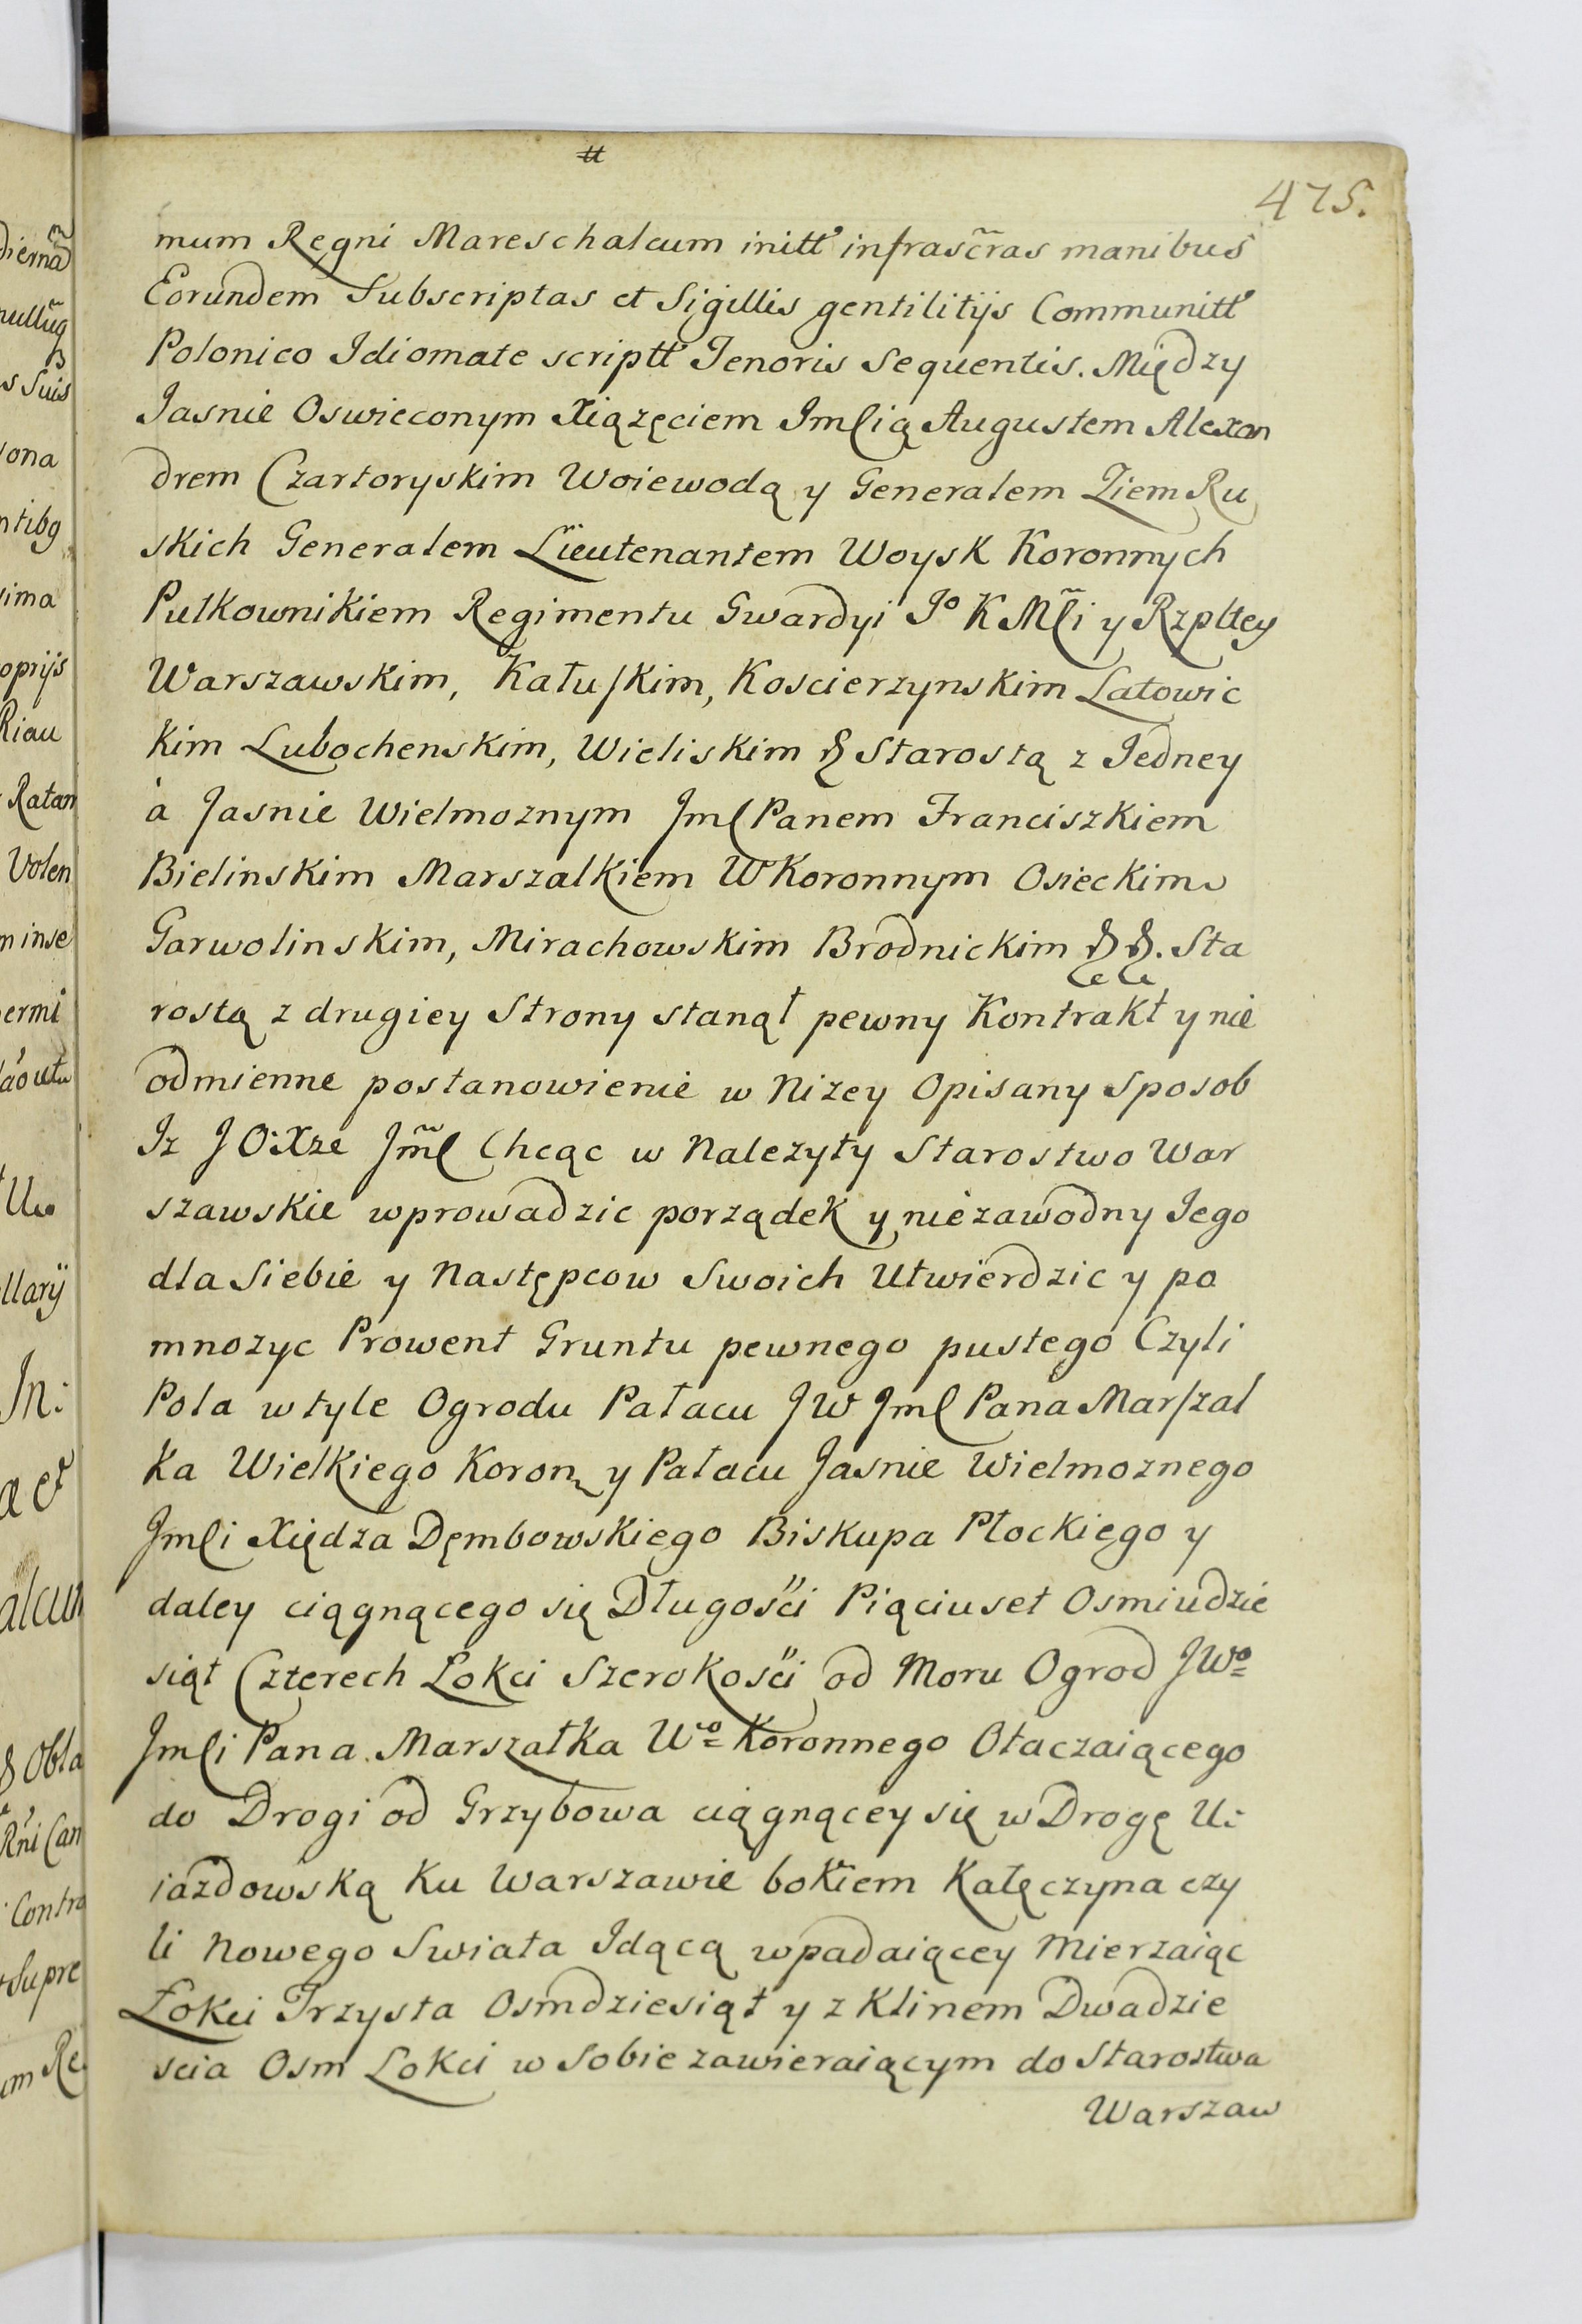 tt
475.
mum Regni Mareschalcum initt' infrascr̃as manibus
Eorundem Subscriptas et Sigillis gentilitijs Communitt'
Polonico Idiomate scriptt' Tenoris Sequentis. Między
Jasnie Oswieconym Xiązęciem Jmścią Augustem Alexan
drem Czartoryskim Woiewodą y Generalem Ziem Ru
skich Generalem Lieutenantem Woysk Koronnych
Pułkownikiem Regimentu Gwardyi Jº K Mści y Rzpltey
Warszawskim, Kałuskim, Koscierzynskim Latowic
kim Lubochenskim, Wieliskim & Starostą z Jedney
à Jasnie Wielmoznym Jmć Panem Franciszkiem
Bielinskim Marszalkiem W Koronnym Osieckim
Garwolinskim, Mirachowskim Brodnickim & &. Sta
rostą z drugiey Strony stanął pewny Kontrakt y nie
odmienne postanowienie w Nizey Opisany Sposob
Iz J O: Xze Jm̃ć Chcąc w Nalezyty Starostwo War
szawskie wprowadzic porządek y niezawodny Jego
dla Siebie y Następcow Swoich Utwierdzic y po
mnozyc Prowent Gruntu pewnego pustego Czyli
Pola w tyle Ogrodu Pałacu JW Jmć Pana Marszał
ka Wielkiego Koron y Pałacu Jasnie Wielmoznego
Jmści Xiędza Dęmbowskiego Biskupa Płockiego y
daley ciągnącego się Długości Piąciuset Osmiudzie
siąt Czterech Łokci Szerokości od Moru Ogrod JWº
Jmści Pana Marszałka Wº Koronnego Otaczaiącego
do Drogi od Grzybowa ciągnącey się w Drogę U:
iazdowską Ku Warszawie bokiem Kałęczyna czy
li Nowego Swiata Idącą wpadaiącey Mierzaiąc
Łokci Trzysta Osmdziesiąt y z Klinem Dwadzie
scia Osm Łokci w Sobie zawieraiącym do Starostwa
Warszaw